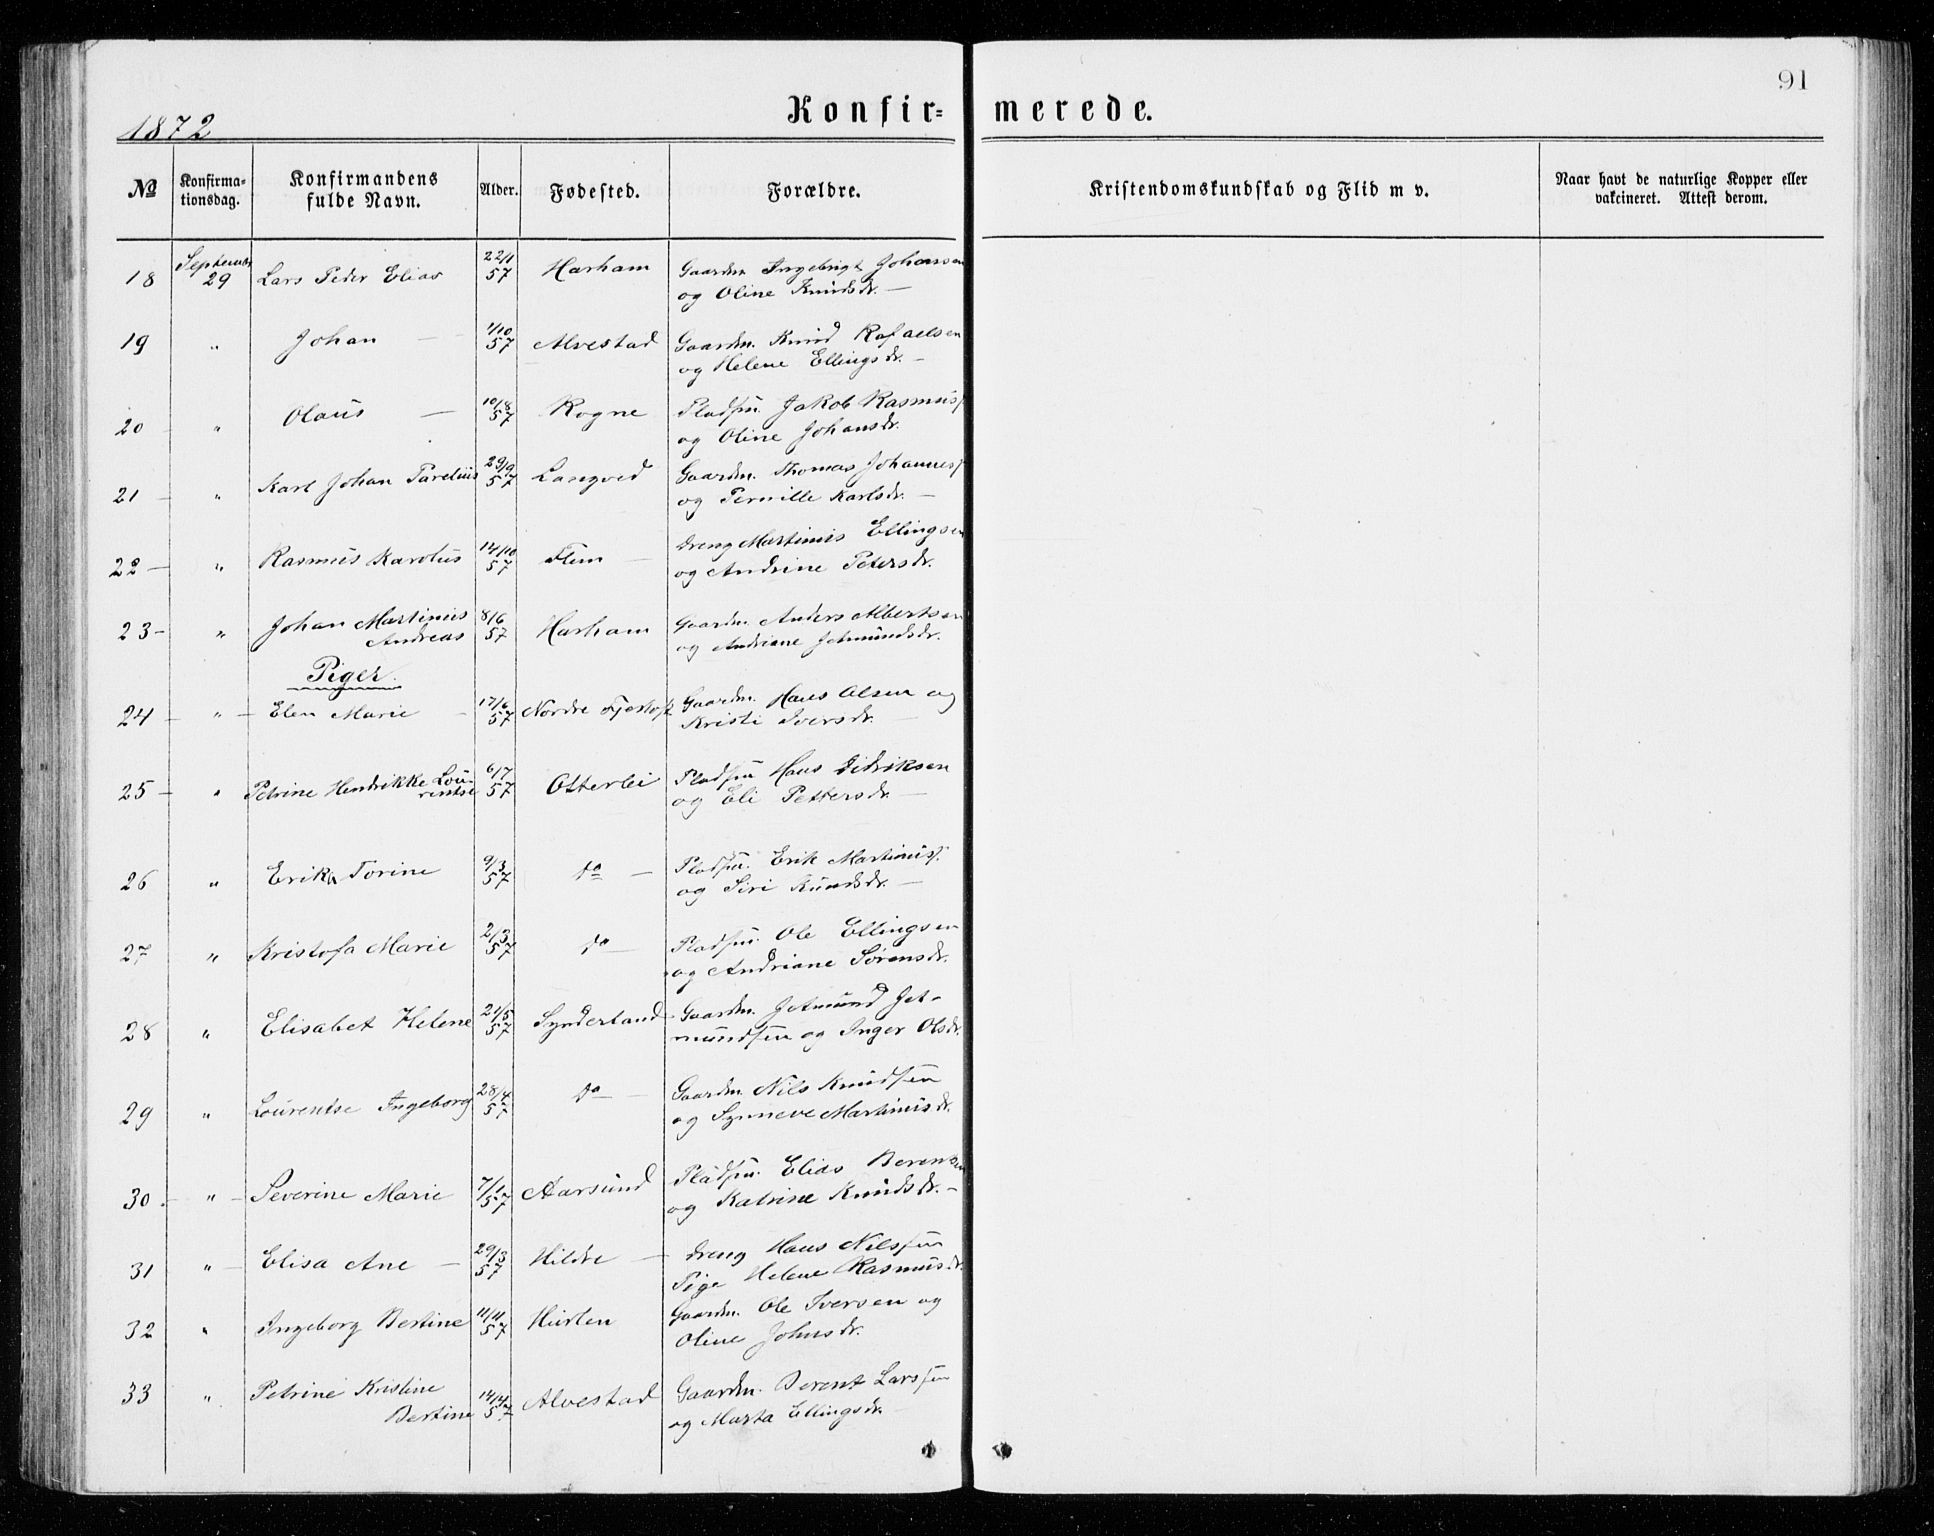 91
1872
Konfir= merede.
№ Konfirma=tionsdag. Konfirmandens fulde Navn. Alder. Fødested. Forældre. Kristendomskundskab og Flid m v. Naar havt de naturlige Kopper eller vakcineret. Attest derom.
18 September 29 Lars Peder Elias 22/1 57 Harham Gaardm Ingebrigt Johansen
og Oline Knudsdr. —
19 " Johan — 1/10 57 Alvestad Gaardm. Knud Rafaelsen
og Helene Ellingsdr. —
20 — " Olaus — 10/8 57 Rogne Pladsm. Jakob Rasmuss
og Oline Johansdr.
21 — " Karl Johan Parelius 29/9 57 Longved Gaardm. Thomas Johanness
og Pernille Karlsdr. —
22 — " Rasmus Karolus 14/10 57 Flem — Dreng Martinus Ellingsen
og Andrine Petersdr.
23 — " Johan Martinus 8/6 57 Harham Gaardm. Anders Albertsen
Andreas og Andriane Jetmundsdr.
Piger.
24 — " — Elen Marie — 17/6 57 Nordre Fjertoft Gaardm. Hans Olsen og
Kristi Iversdr. —
25 — " Petrine Hendrikke Lou- 6/7 57 Otterlei Pladsm Hans Didriksen
rentse og Eli Pettersdr. —
26 " Erika Torine 9/3 57 do — Pladsm. Erik Martinuss.
og Siri Knudsdr. —
27 " Kristofa Marie 2/3 57 do — Pladsm. Ole Ellingsen
og Andriane Sørensdr.
28 " Elisabet Helene 21/5 57 Synderland Gaardm. Jetmund Jet-
mundsen og Inger Olsdr.
29 " Lourentse Ingeborg 28/4 57 do — Gaardm. Nils Knudsen
og Synneve Martinusdr.
30 . — " — Severine Marie 7/1 57 Aarsund Pladsm. Elias Berentsen
og Katrine Knudsdr. —
31 " — Elisa Ane — 29/3 57 Hildre — Dreng Hans Nilssen
Pige Helene Rasmusdr.
32 " Ingeborg Bertine 11/11 57 Husten Gaardm. Ole Iversen og
Oline Johnsdr.
33 " Petrine Kristine 14/4 57 Alvestad Gaardm. Berent Larssen
Bertine og Marta Ellingsdr. —